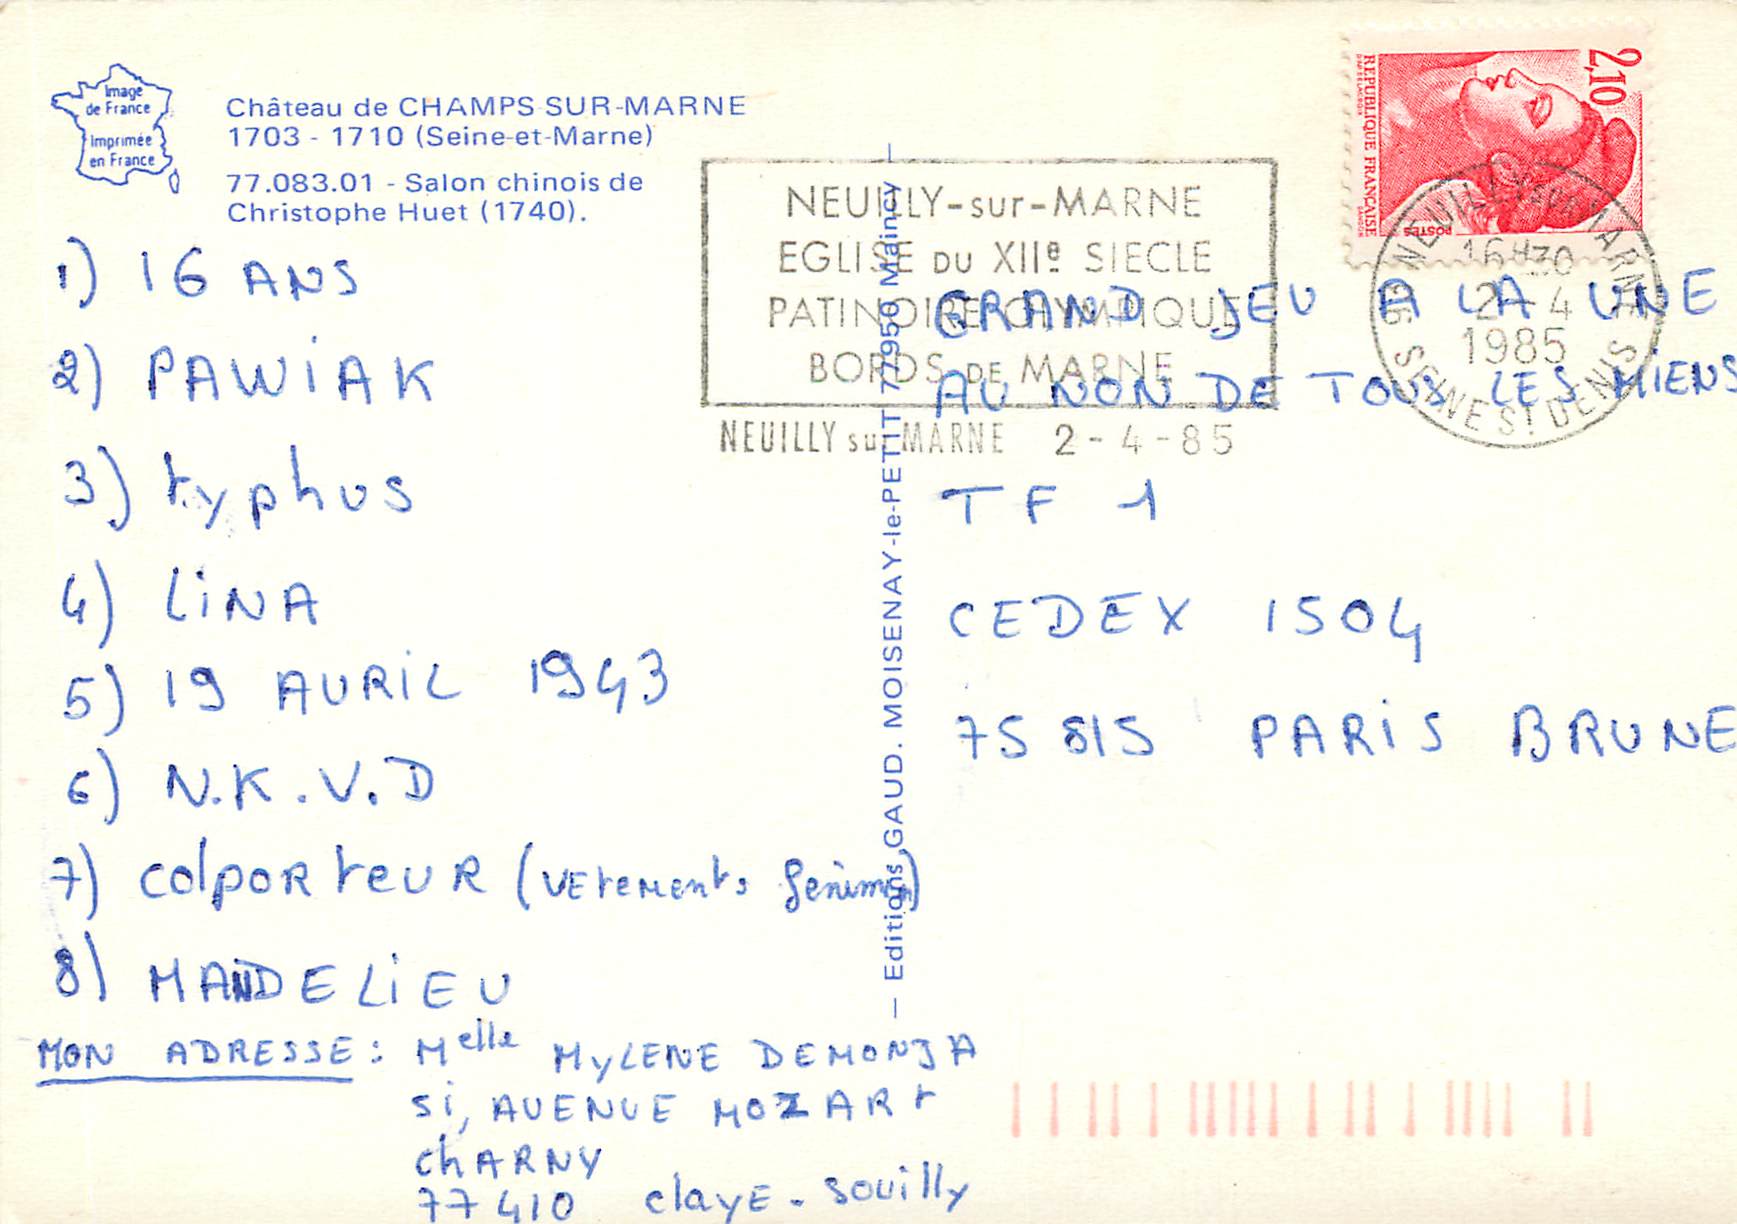 Image
de France
Imprimée
en France
Château de CHAMPS-SUR-MARNE
1703 - 1710 (Seine-et-Marne)
77.083.01 - Salon chinois de
Christophe Huet (1740).
1) 16 ANS
2) PAWIAK
3) typhus
4) LINA
5) 19 AVRIL 1943
6) N.K.V.D
7) colporteur (vetements
8) MANDELIEU
MON ADRESSE : Melle MYLENE DEMONJA
AVENUE MOZART
CHARNY
77410 claye-souilly
— Editions GAUD. MOISENAY-le-PETIT 77950 Maincy —
NEUILLY-sur-MARNE
EGLISE DU XIIe SIECLE
PATINOIRE OLYMPIQUE
BORDS DE MARNE
NEUILLY sur MARNE 2-4-85
2,10
REPUBLIQUE FRANÇAISE
POSTES
NEUILLY SUR MARNE
16H30
2-4
1985
93 SEINE ST DENIS
GRAND JEU A LA UNE
AU NON DE TOUS LES MIENS
TF 1
CEDEX 1504
75815 PARIS BRUNE